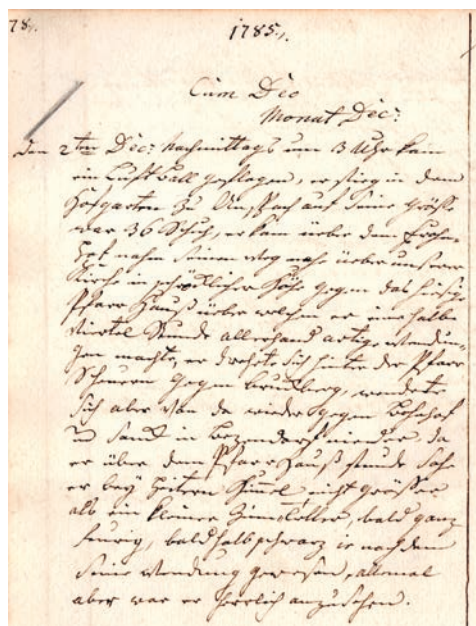 78.
1785.
Cum Deo
Monat Dec:
Den 2ten Dec: Nachmittags um 3 Uhr kam
ein Luftball geflogen, er stieg in dem
Hofgarten zu Onspach auf seine größe
war 36 Schuh, er kam ueber dem
nahm seinen Weg nahe ueber unsere
Kirche in schröcklicher Höhe gegen das hiesige
Pfarr Hauß ueber welchem er eine halbe
Viertel Stunde allerhand artige Wendun-
gen machte, er drehete sich hinter der Pfarr
Scheuern gegen Bruckberg, wendete
sich aber von da wieder gegen
u. sank in Bezendorf nieder, da
er über dem Pfarr Hauß stunde sahe
er bey heitern Himmel nicht größer
als ein kleiner Zinnteller, bald ganz
feurig, bald halb schwarz je nachdem
seine Wendung gewesen, allemal
aber war er herrlich anzusehen.